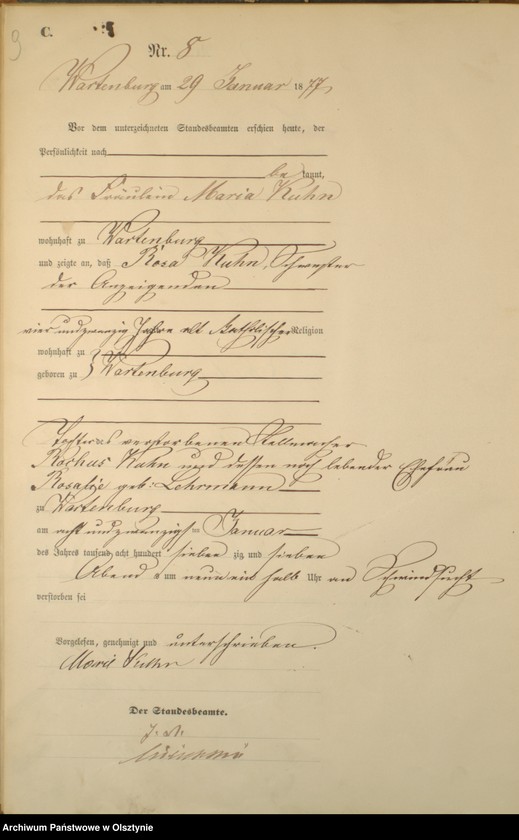 9
C.
Nr. 8
Wartenburg am 29 Januar 1877
Vor dem unterzeichneten Standesbeamten erschien heute, der
Persönlichkeit nach
be kannt,
das Fräulein Maria Kuhn
wohnhaft zu Wartenburg
und zeigte an, daß Rosa Kuhn, Schwester
der Anzeigenden
vier und zwanzig Jahre alt katholischer Religion
wohnhaft zu
geboren zu } Wartenburg
Tochter des verstorbenen Stellmacher
Rochus Kuhn und dessen noch lebender Ehefrau
Rosalie geb. Lehrmann
zu Wartenburg
am acht und zwanzigst= Januar
des Jahres tausend acht hundert sieben zig und sieben
Abend s um neun ein halb Uhr an Schwindsucht
verstorben sei
Vorgelesen, genehmigt und unterschrieben.
Maria Kuhn
Der Standesbeamte.
Archiwum Państwowe w Olsztynie